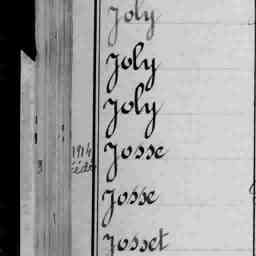 Joly
Joly
Joly
1914
Josse
Josse
Josset